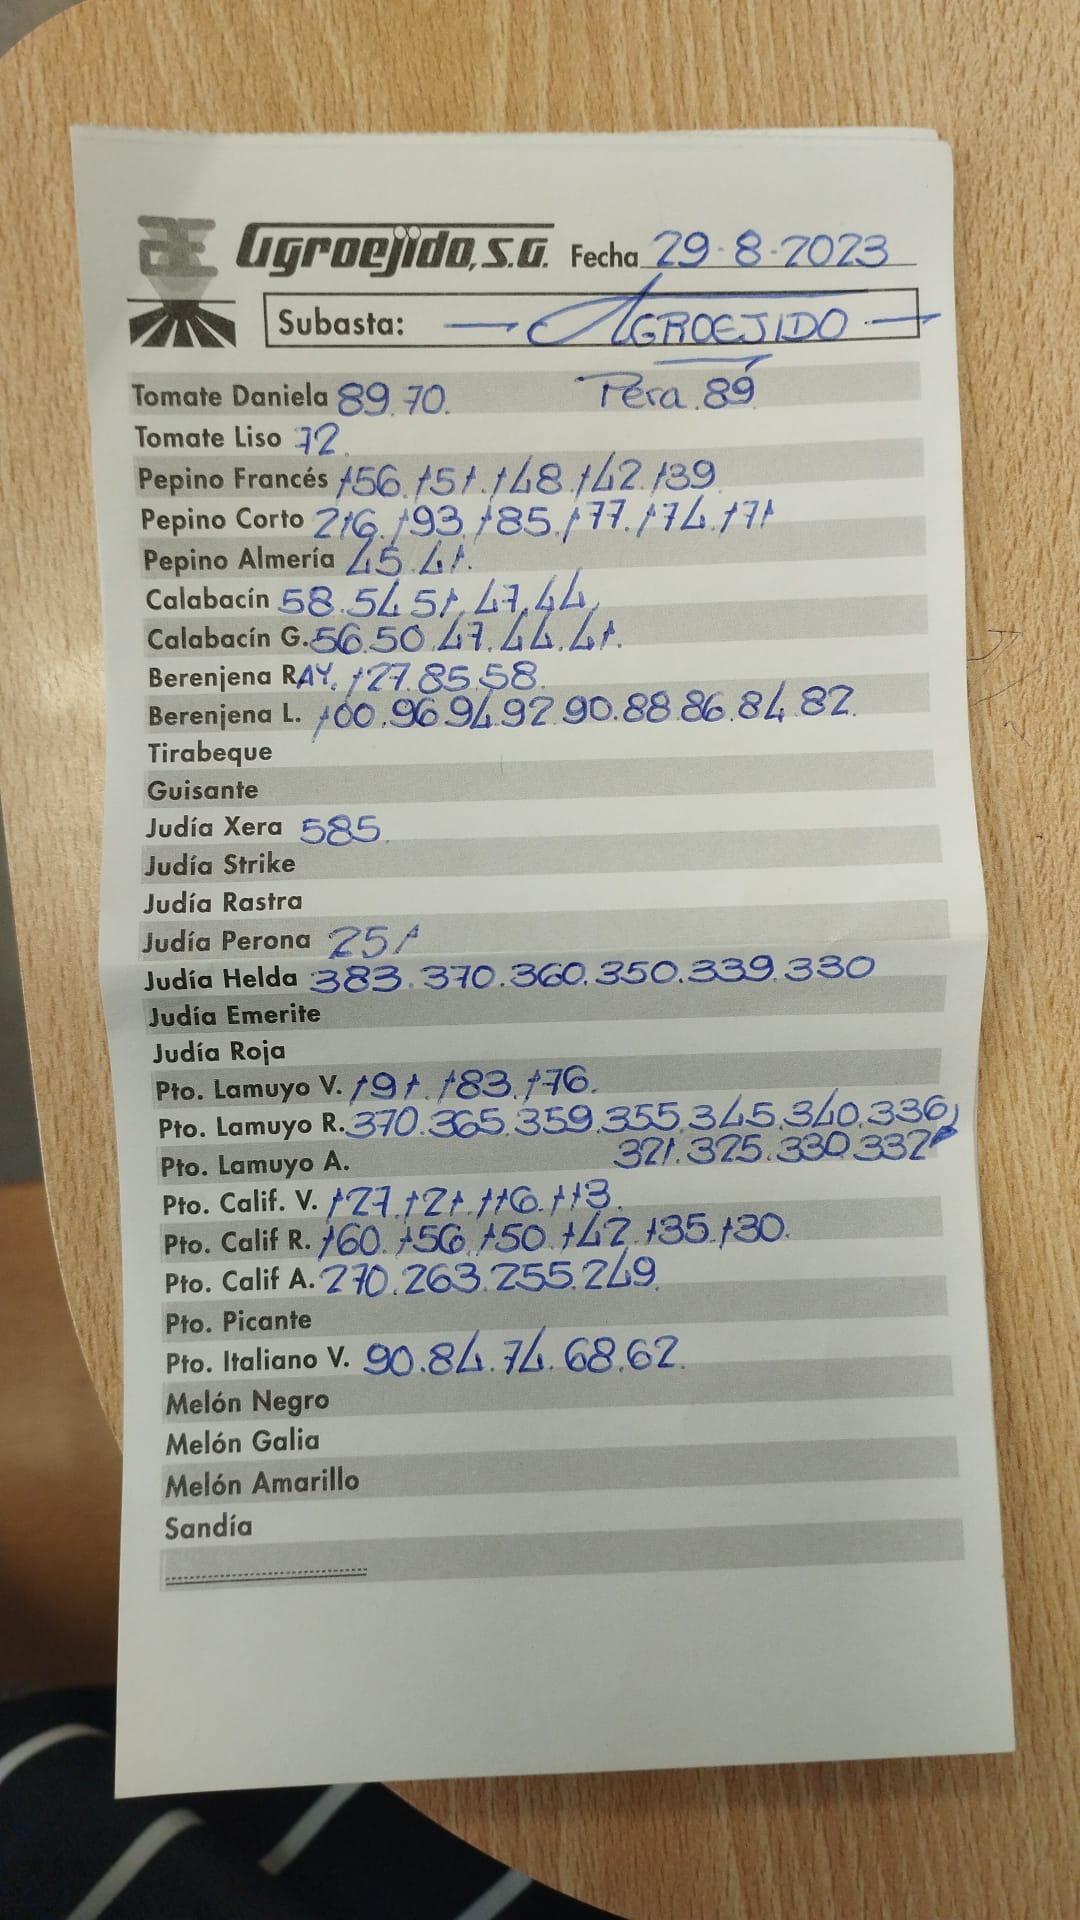 Agroejido, S.A. Fecha 29-8-2023
Subasta: AGROEJIDO
Tomate Daniela 89.70. Pera.89
Tomate Liso 72.
Pepino Francés 156.151.148.142.139
Pepino Corto 216.193.185.177.174.171
Pepino Almería 45.41.
Calabacín 58.54.51.47.44.
Calabacín G. 56.50.47.44.41.
Berenjena RAY. 127.85.58.
Berenjena L. 100.96.94.92.90.88.86.84.82.
Tirabeque
Guisante
Judía Xera 585.
Judía Strike
Judía Rastra
Judía Perona 251
Judía Helda 383.370.360.350.339.330
Judía Emerite
Judía Roja
Pto. Lamuyo V. 191.183.176.
Pto. Lamuyo R. 370.365.359.355.345.340.336
321.325.330.332
Pto. Lamuyo A.
Pto. Calif. V. 127.121.116.113.
Pto. Calif R. 160.156.150.142.135.130.
Pto. Calif A. 270.263.255.249.
Pto. Picante
Pto. Italiano V. 90.84.74.68.62.
Melón Negro
Melón Galia
Melón Amarillo
Sandía